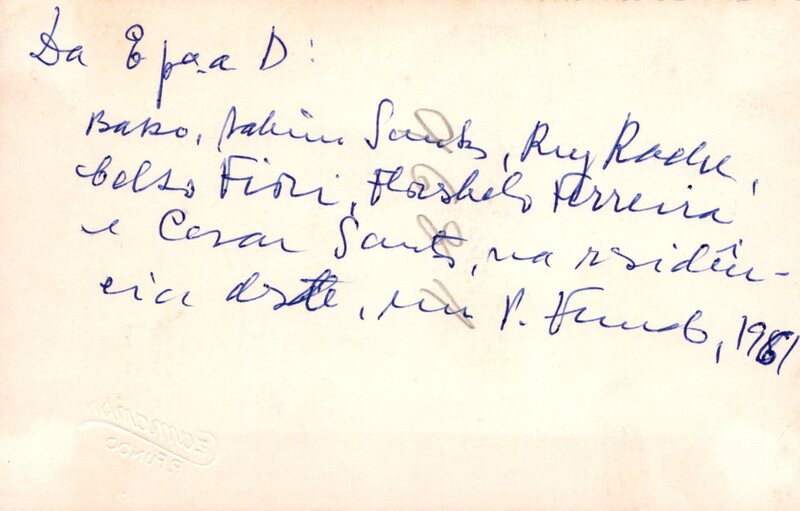 Da E p.a a D:
Basso, Sabino Santos, Ruy Rache,
Celso Fiori, Florisbelo Ferreira
e Cesar Santos, na residên-
cia deste, em P. Fundo, 1961
P. FUNDO